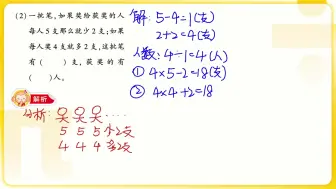 (2)一批笔,如果奖给获奖的人
每人5支那么就少2支;如果
每人奖4支就多2支,这批笔
有( )支,获奖的有
( )人。
解: 5-4=1(支)
2+2=4(支)
人数: 4÷1=4(人)
① 4×5-2=18(支)
② 4×4+2=18
解析
分析:
5 5 5 少2支
4 4 4 多2支